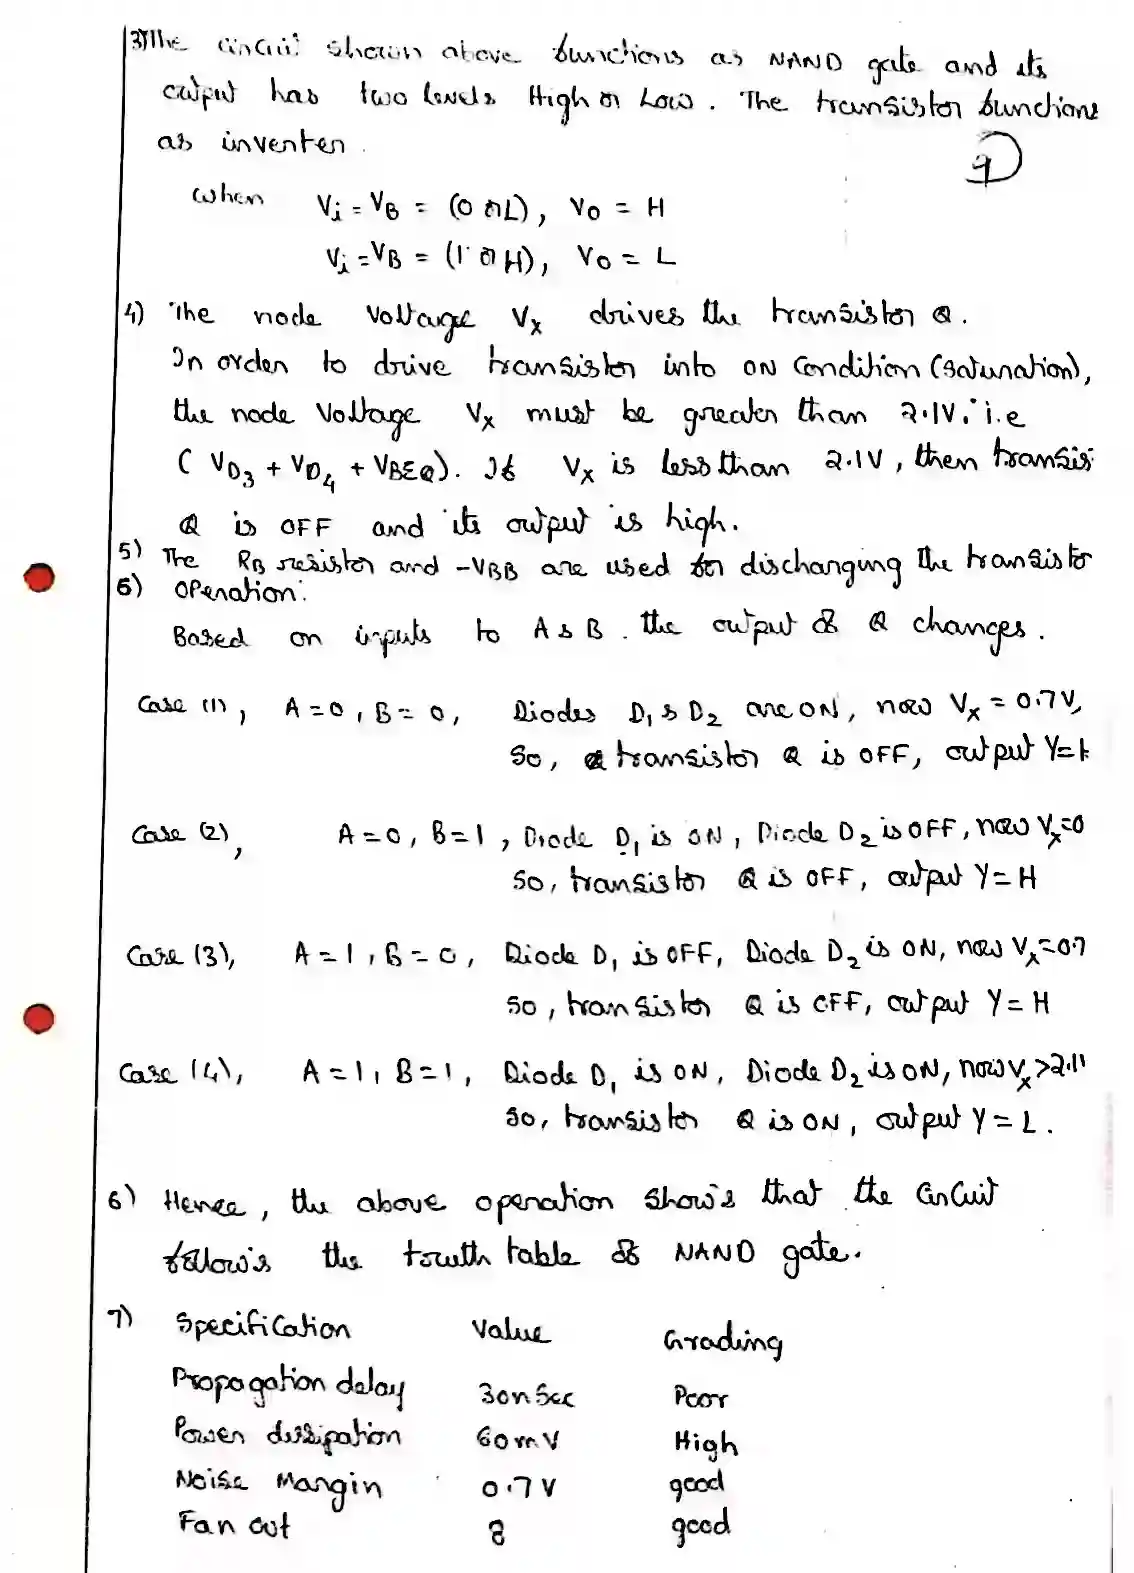 3) The circuit shown above functions as NAND gate and its
output has two levels High or Low. The transistor functions
as inverter.
9
when Vi = VB = (0 or L), Vo = H
Vi = VB = (1 or H), Vo = L
4) The node voltage Vx drives the transistor Q.
In order to drive transistor into ON Condition (Saturation),
the node voltage Vx must be greater than 2.1V. i.e
( VD3 + VD4 + VBEQ). If Vx is less than 2.1V, then transis
Q is OFF and its output is high.
5) The RB resistor and -VBB are used for discharging the transisto
6) Operation:
Based on inputs to A & B. the output of Q changes.
Case (1), A=0, B=0, Diodes D1 & D2 are ON, now Vx = 0.7V,
So, transistor Q is OFF, output Y=H
Case (2), A=0, B=1, Diode D1 is ON, Diode D2 is OFF, now Vx=0
So, transistor Q is OFF, output Y=H
Case (3), A=1, B=0, Diode D1 is OFF, Diode D2 is ON, now Vx=0.7
So, transistor Q is OFF, output Y=H
Case (4), A=1, B=1, Diode D1 is ON, Diode D2 is ON, now Vx>2.1
So, transistor Q is ON, output Y=L.
6) Hence, the above operation show's that the Circuit
follow's the truth table of NAND gate.
7) Specification Value Grading
Propagation delay 30nSec Poor
Power dissipation 60mV High
Noise Margin 0.7V good
Fan out 8 good